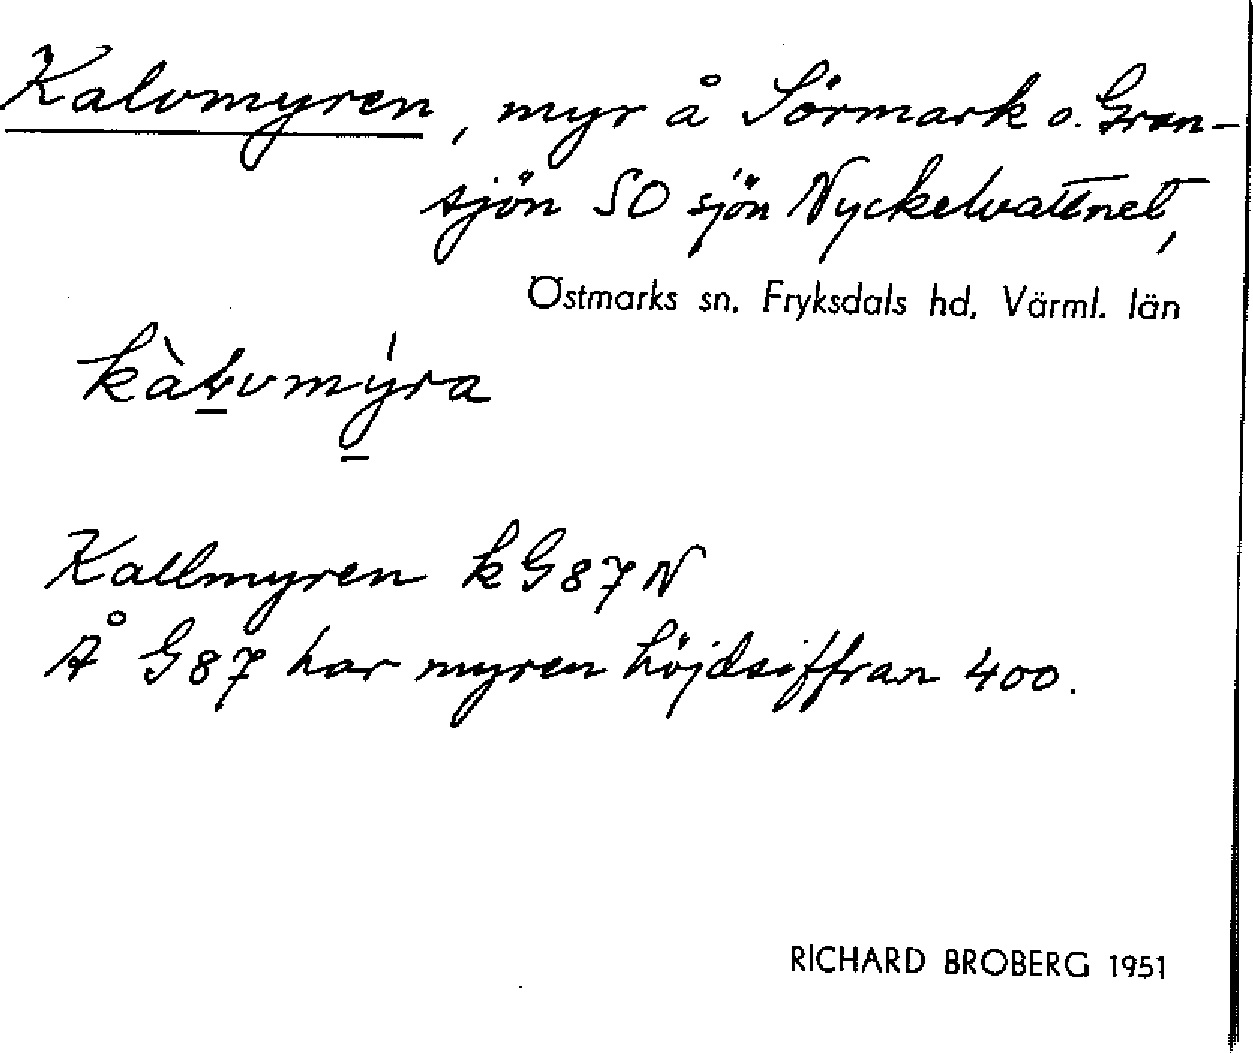 Kalvmyren, myr å Sörmark o. Gran-
sjön SO sjön Nyckelvattnet,
Östmarks sn. Fryksdals hd. Värml. län
kàḻvmýra
Kallmyren k G 87 N
Å G 87 har myren höjdsiffran 400.
RICHARD BROBERG 1951